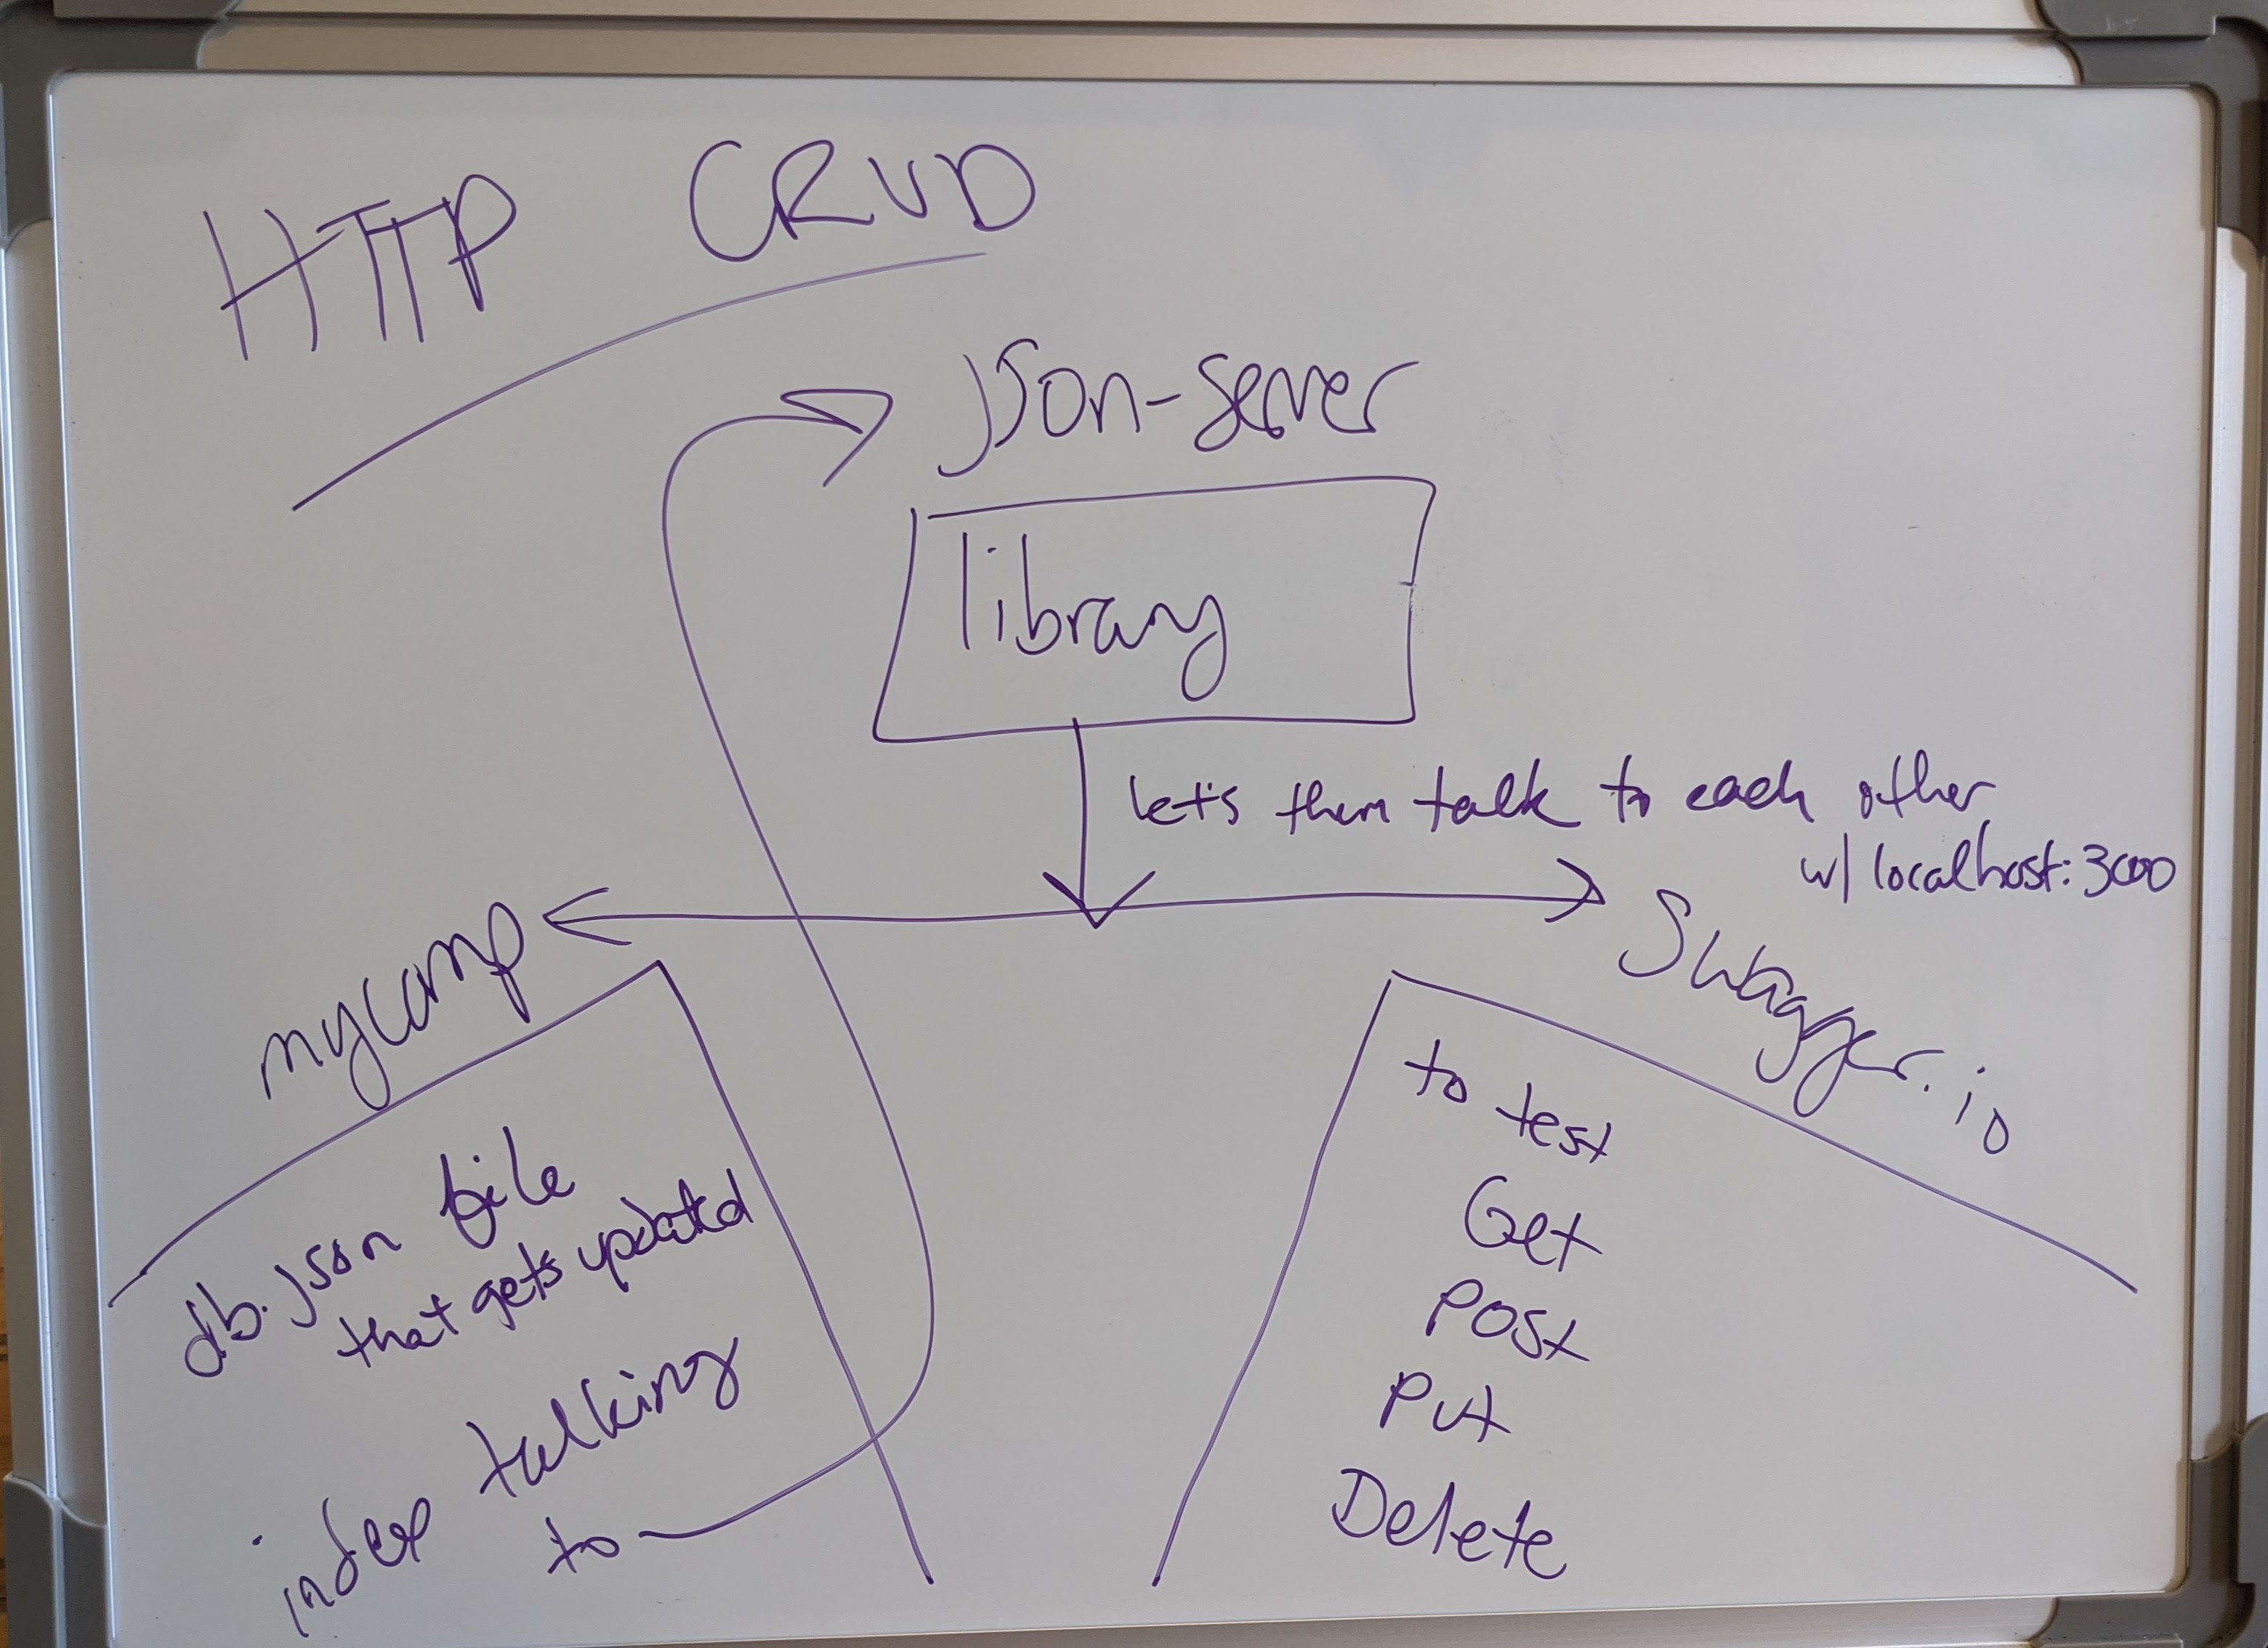 HTTP CRUD
json-server
library
let's them talk to each other
w/ localhost:3000
mycomp
Swagger.io
db.json file
that gets updated
index talking
to
to test
Get
Post
Put
Delete